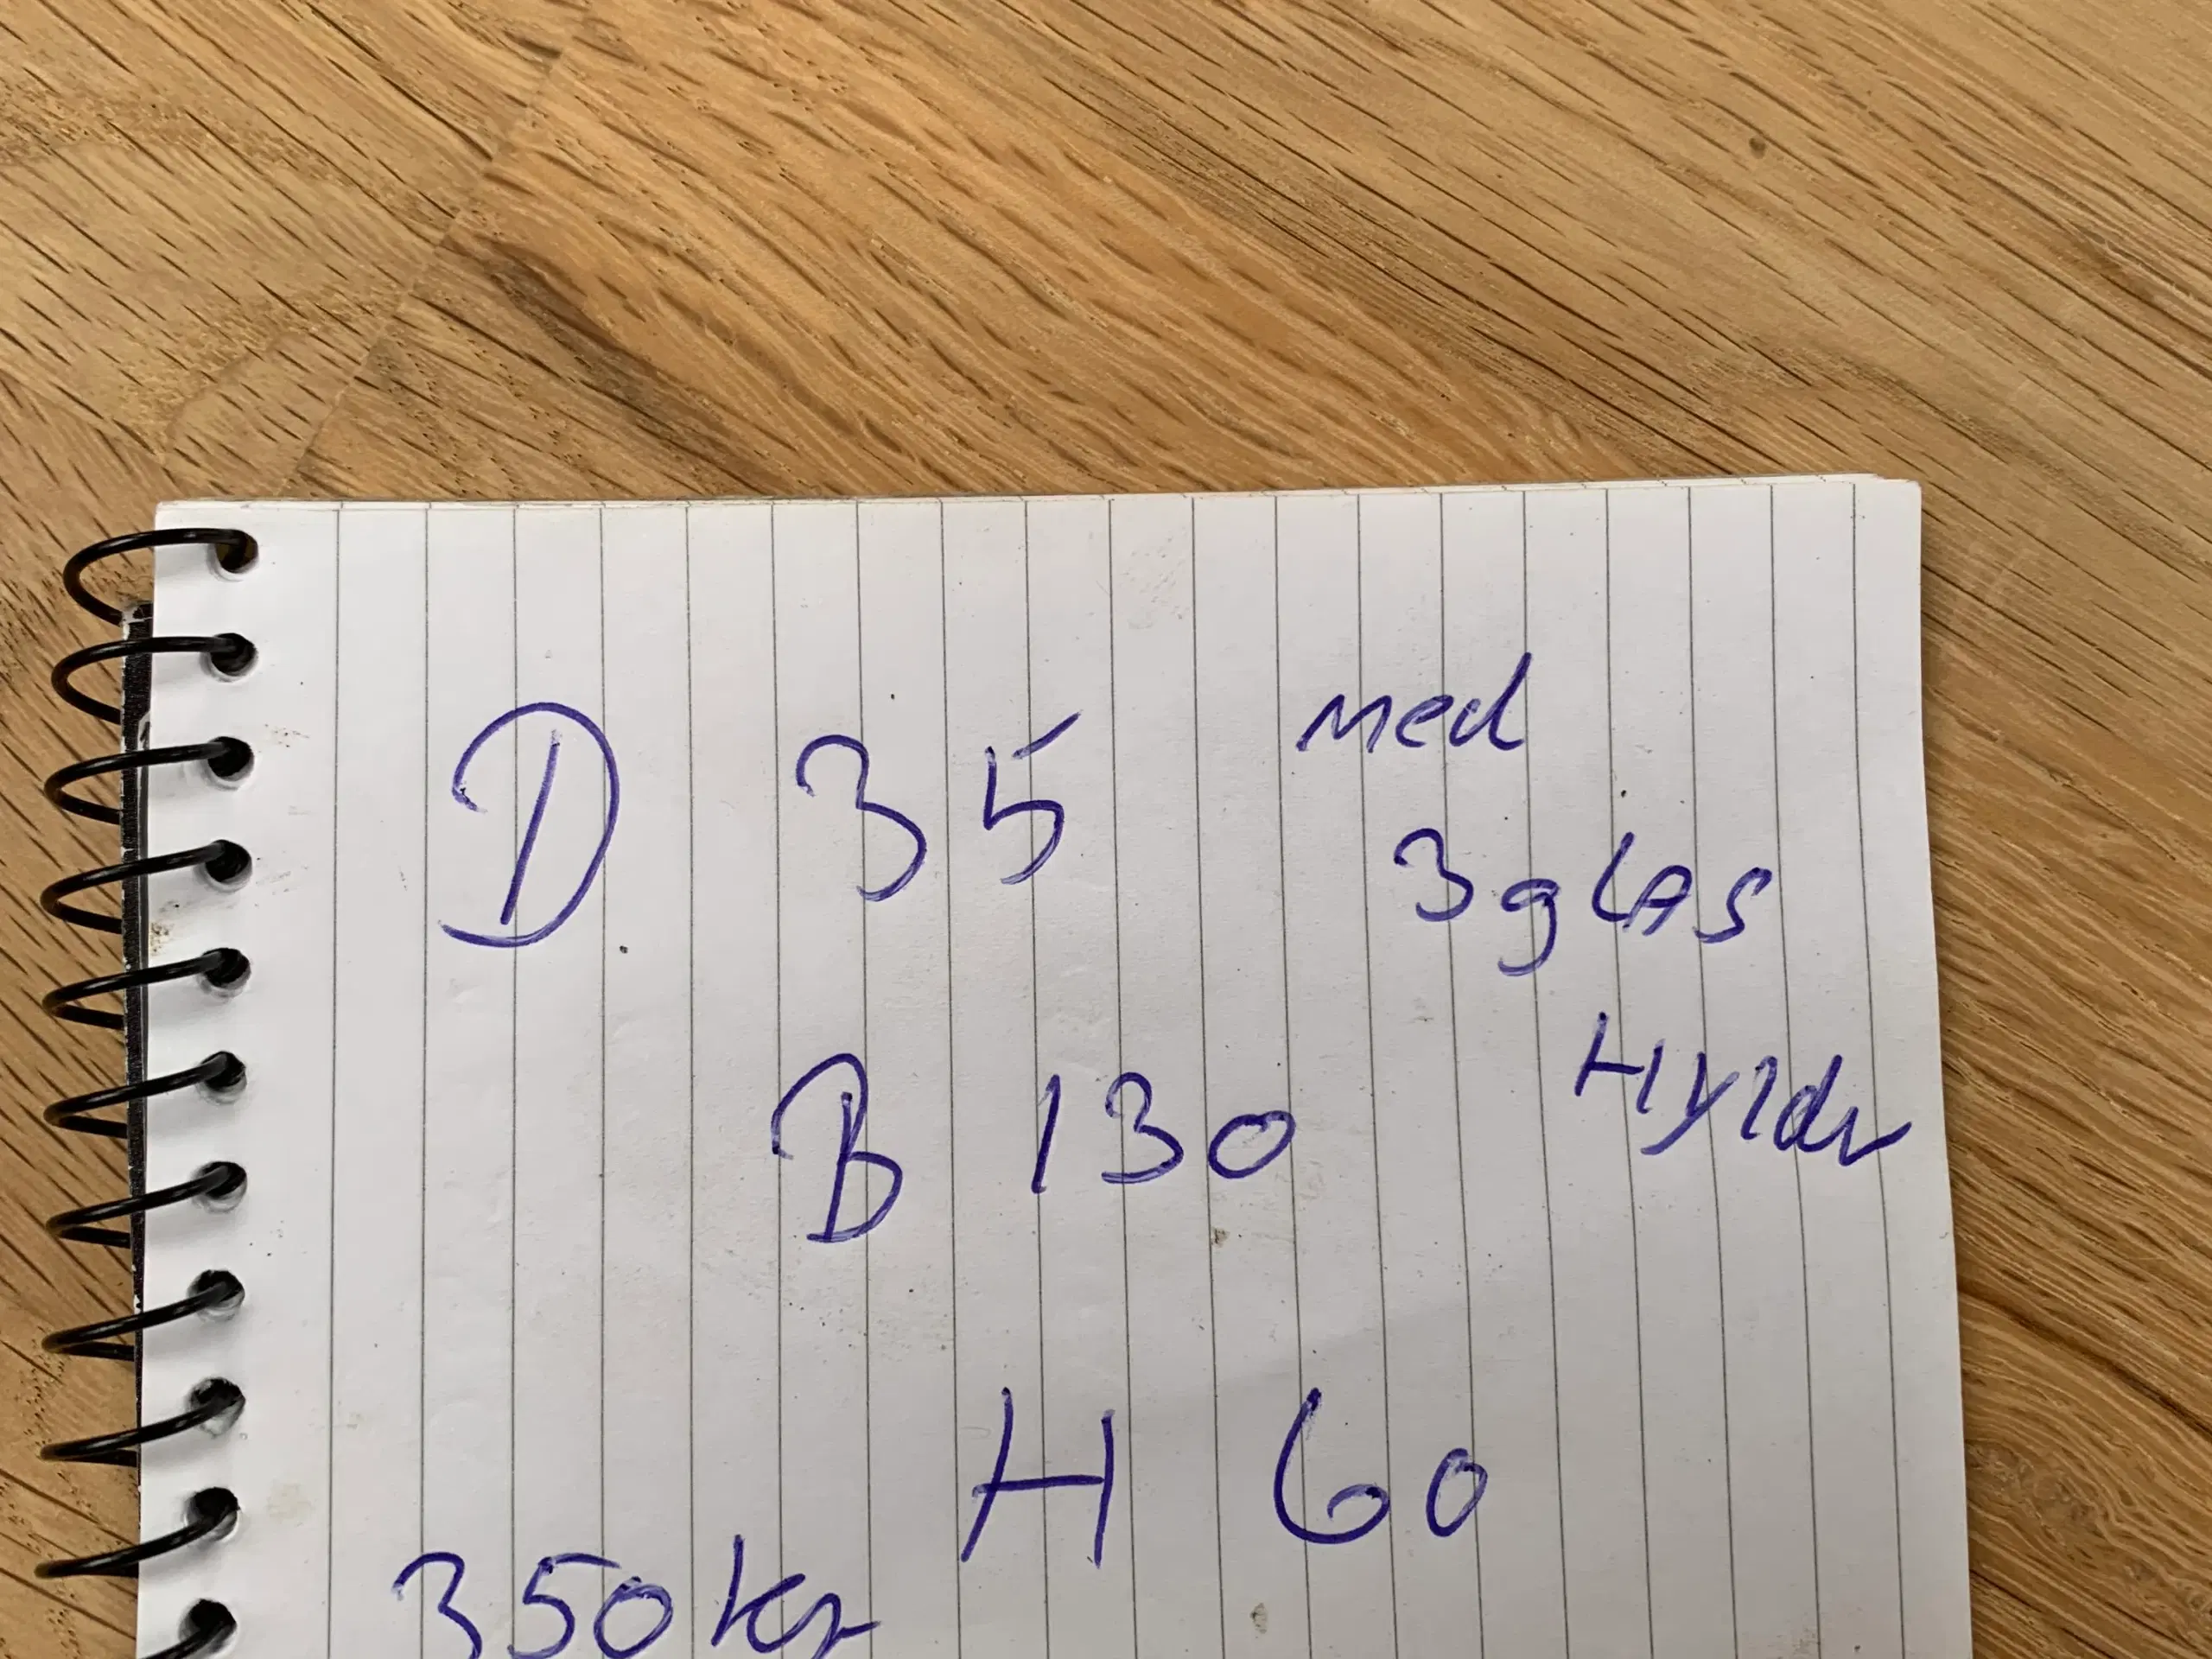 D 35 med
3 glas
Hylder
B 130
H 60
350 kr